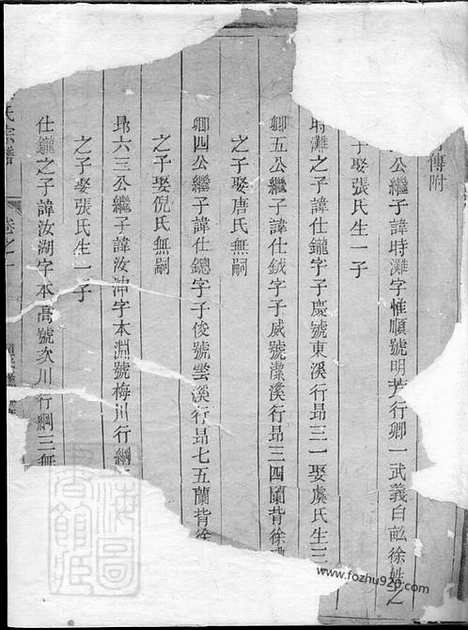 傳附
公繼子諱時灘字惟順號明芳行卿一武義白
子娶張氏生一子
時灘之子諱仕鑨字子慶號東溪行昂三一娶虞氏生三
卿五公繼子諱仕鉞字子威號潔溪行昂三四蘭背徐
之子娶唐氏無嗣
卿四公繼子諱仕鏓字子俊號雲溪行昂七五蘭背徐
之子娶倪氏無嗣
昂六三公繼子諱汝沖字本淵號梅川行綱
之子娶張氏生一子
仕鑨之子諱汝湖字本高號次川行綱三無
氏宗譜
卷之
上海圖書館藏
www.fozhu920.com